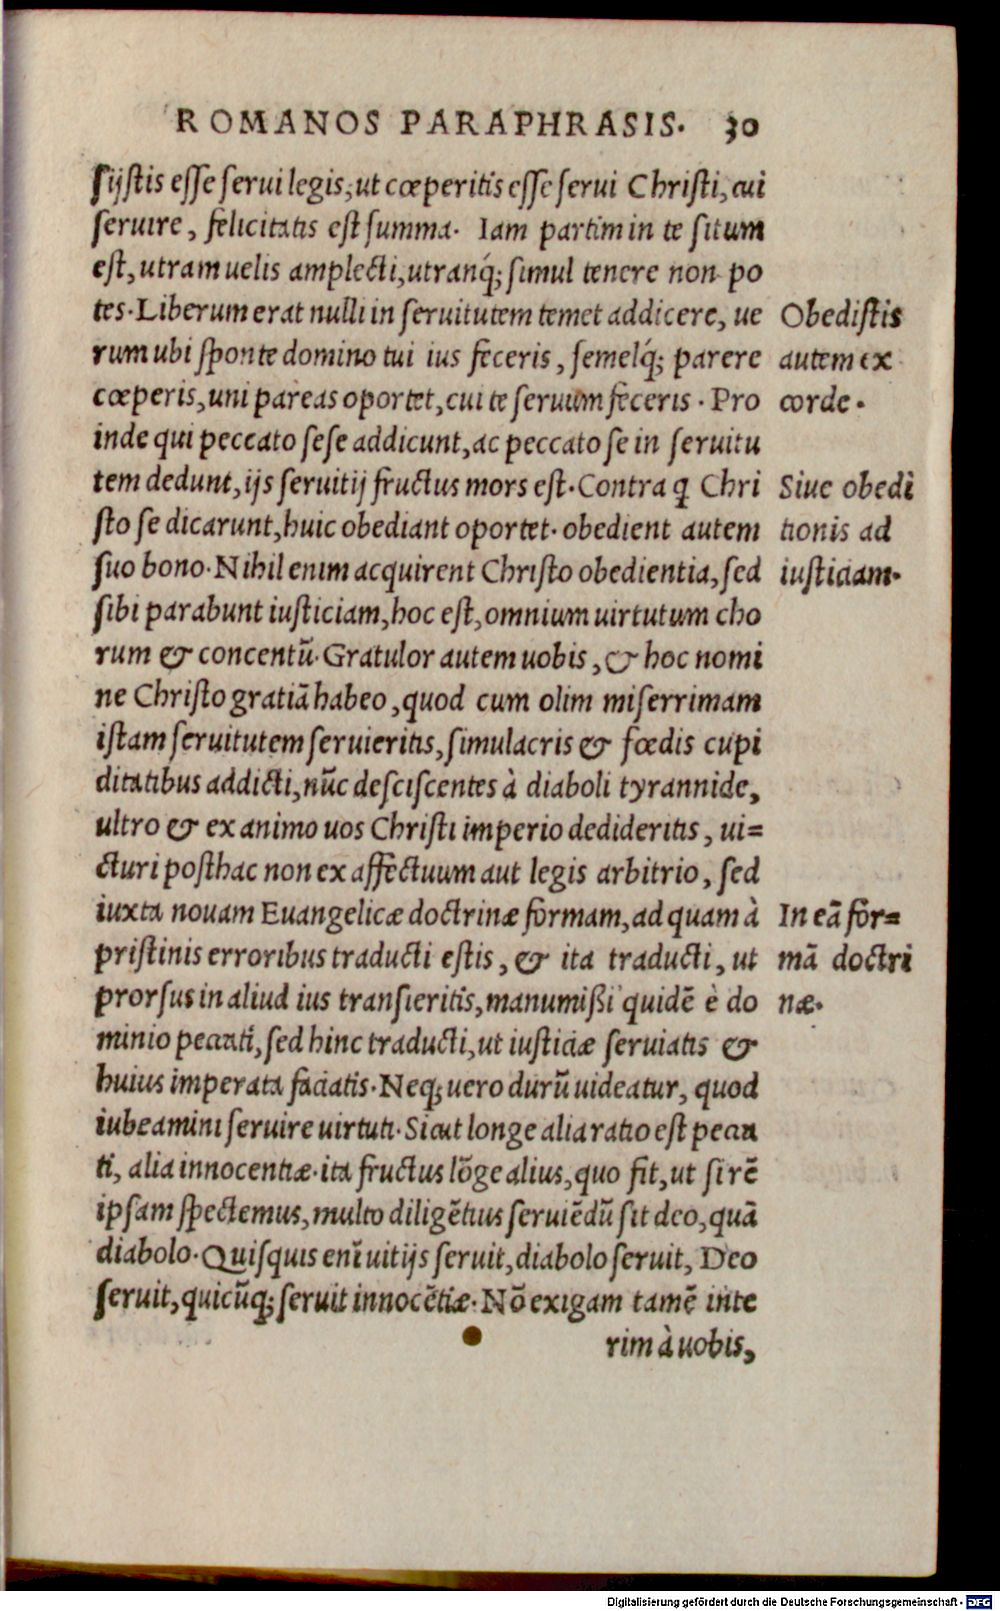 ROMANOS PARAPHRASIS. 30
sijstis esse serui legis, ut cœperitis esse serui Christi, cui
seruire, felicitatis est summa. Iam partim in te situm
est, utram uelis amplecti, utranq́; simul tenere non po
tes. Liberum erat nulli in seruitutem temet addicere, ue
rum ubi sponte domino tui ius feceris, semelq́; parere
cœperis, uni pareas oportet, cui te seruum feceris. Pro
inde qui peccato sese addicunt, ac peccato se in seruitu
tem dedunt, ijs seruitij fructus mors est. Contra q̃ Chri
sto se dicarunt, huic obediant oportet. obedient autem
suo bono. Nihil enim acquirent Christo obedientia, sed
sibi parabunt iusticiam, hoc est, omnium uirtutum cho
rum & concentũ. Gratulor autem uobis, & hoc nomi
ne Christo gratiã habeo, quod cum olim miserrimam
istam seruitutem seruieritis, simulacris & fœdis cupi
ditatibus addicti, nũc desciscentes à diaboli tyrannide,
ultro & ex animo uos Christi imperio dedideritis, ui=
cturi posthac non ex affectuum aut legis arbitrio, sed
iuxta nouam Euangelicæ doctrinæ formam, ad quam à
pristinis erroribus traducti estis, & ita traducti, ut
prorsus in aliud ius transieritis, manumißi quidẽ è do
minio peccati, sed hinc traducti, ut iusticiæ seruiatis &
huius imperata faciatis. Neq; uero durũ uideatur, quod
iubeamini seruire uirtuti. Sicut longe alia ratio est pecca
ti, alia innocentiæ. ita fructus lõge alius, quo fit, ut si rẽ
ipsam spectemus, multo diligẽtius seruiẽdũ sit deo, quã
diabolo. Quisquis enĩ uitijs seruit, diabolo seruit, Deo
seruit, quicũq; seruit innocẽtiæ. Nõ exigam tamẽ inte
rim à uobis,
Obedistis
autem ex
corde.
Siue obedi
tionis ad
iusticiam.
In eã for=
mã doctri
næ.
Digitalisierung gefördert durch die Deutsche Forschungsgemeinschaft - DFG